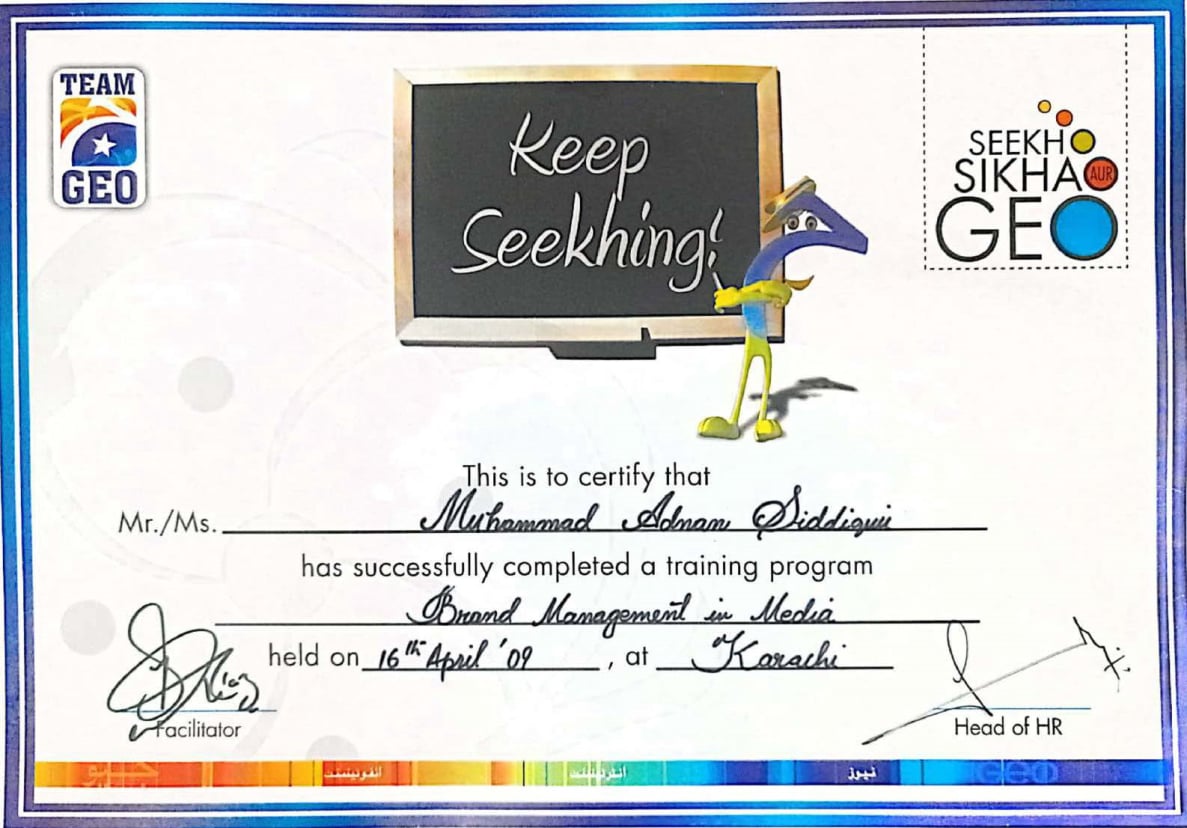 TEAM
GEO
Keep
Seekhing!
SEEKH
SIKHA AUR
GEO
This is to certify that
Mr./Ms. Muhammad Adnan Siddiqui
has successfully completed a training program
Brand Management in Media
held on 16th April '09 , at Karachi
Facilitator
Head of HR
نیوز
GEO